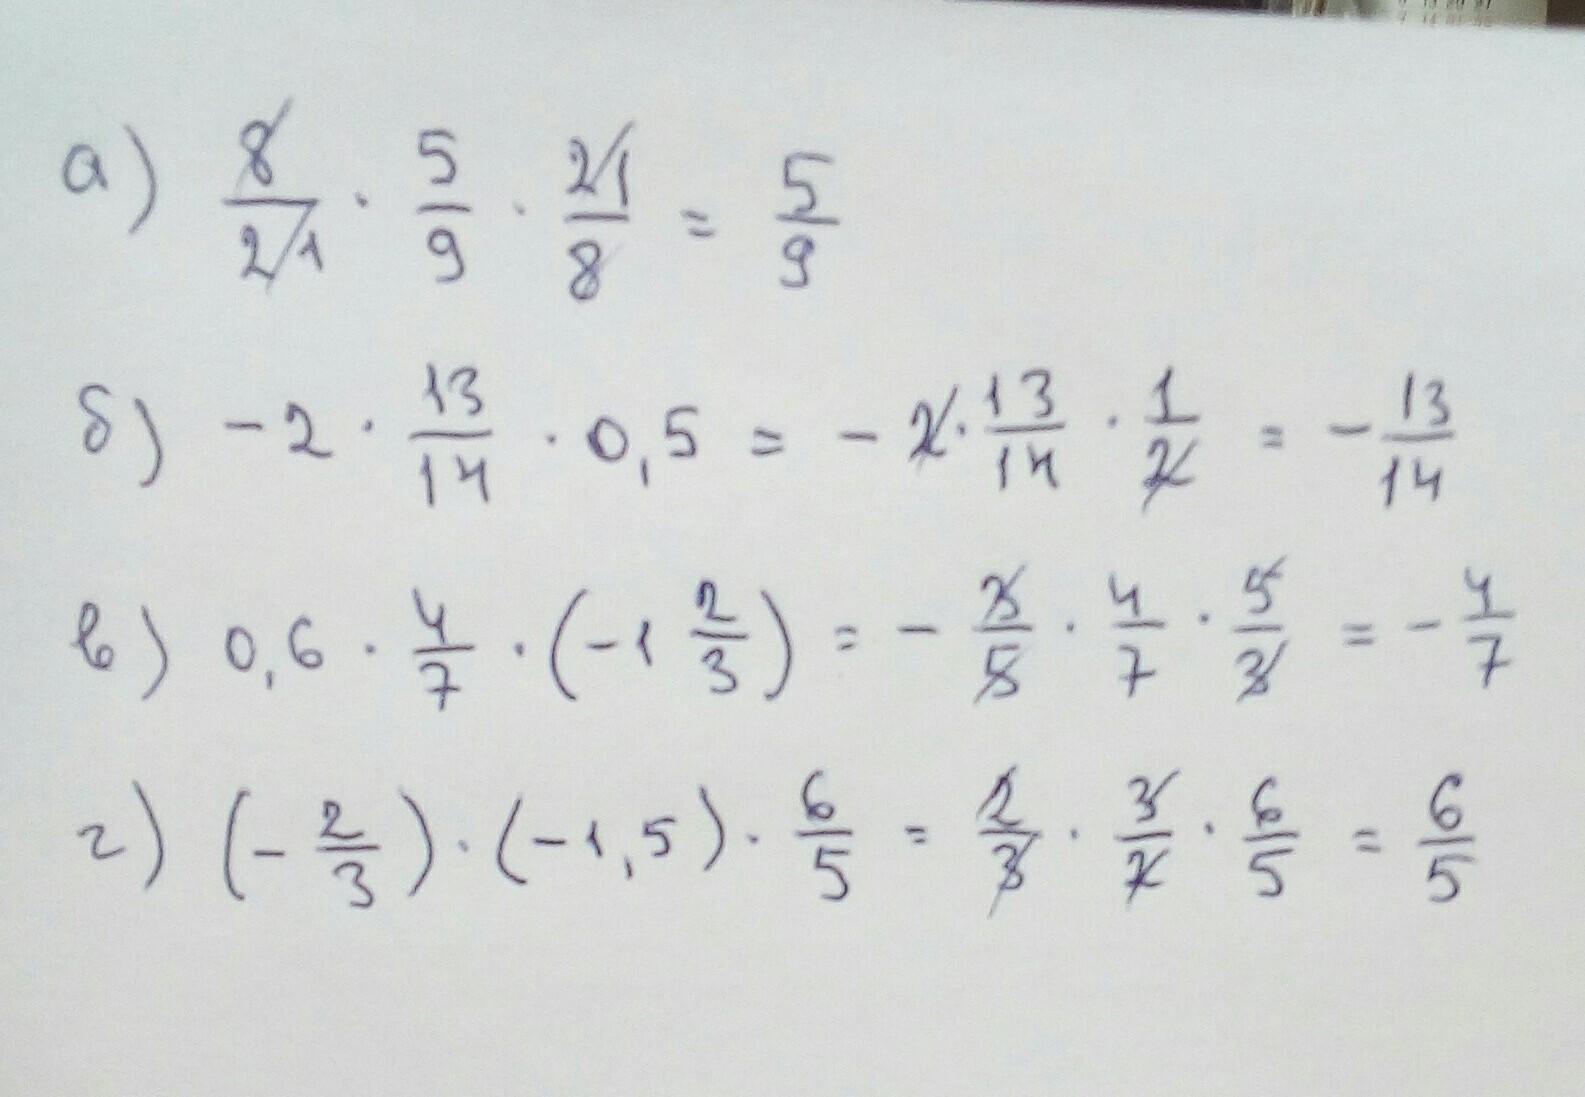 а) 8/21 · 5/9 · 21/8 = 5/9
б) -2 · 13/14 · 0,5 = -2 · 13/14 · 1/2 = -13/14
в) 0,6 · 4/7 · (-1 2/3) = -3/5 · 4/7 · 5/3 = -4/7
г) (-2/3) · (-1,5) · 6/5 = 2/3 · 3/2 · 6/5 = 6/5